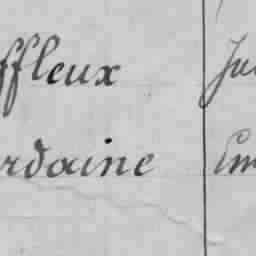 ffleux Ju
rdaine Em